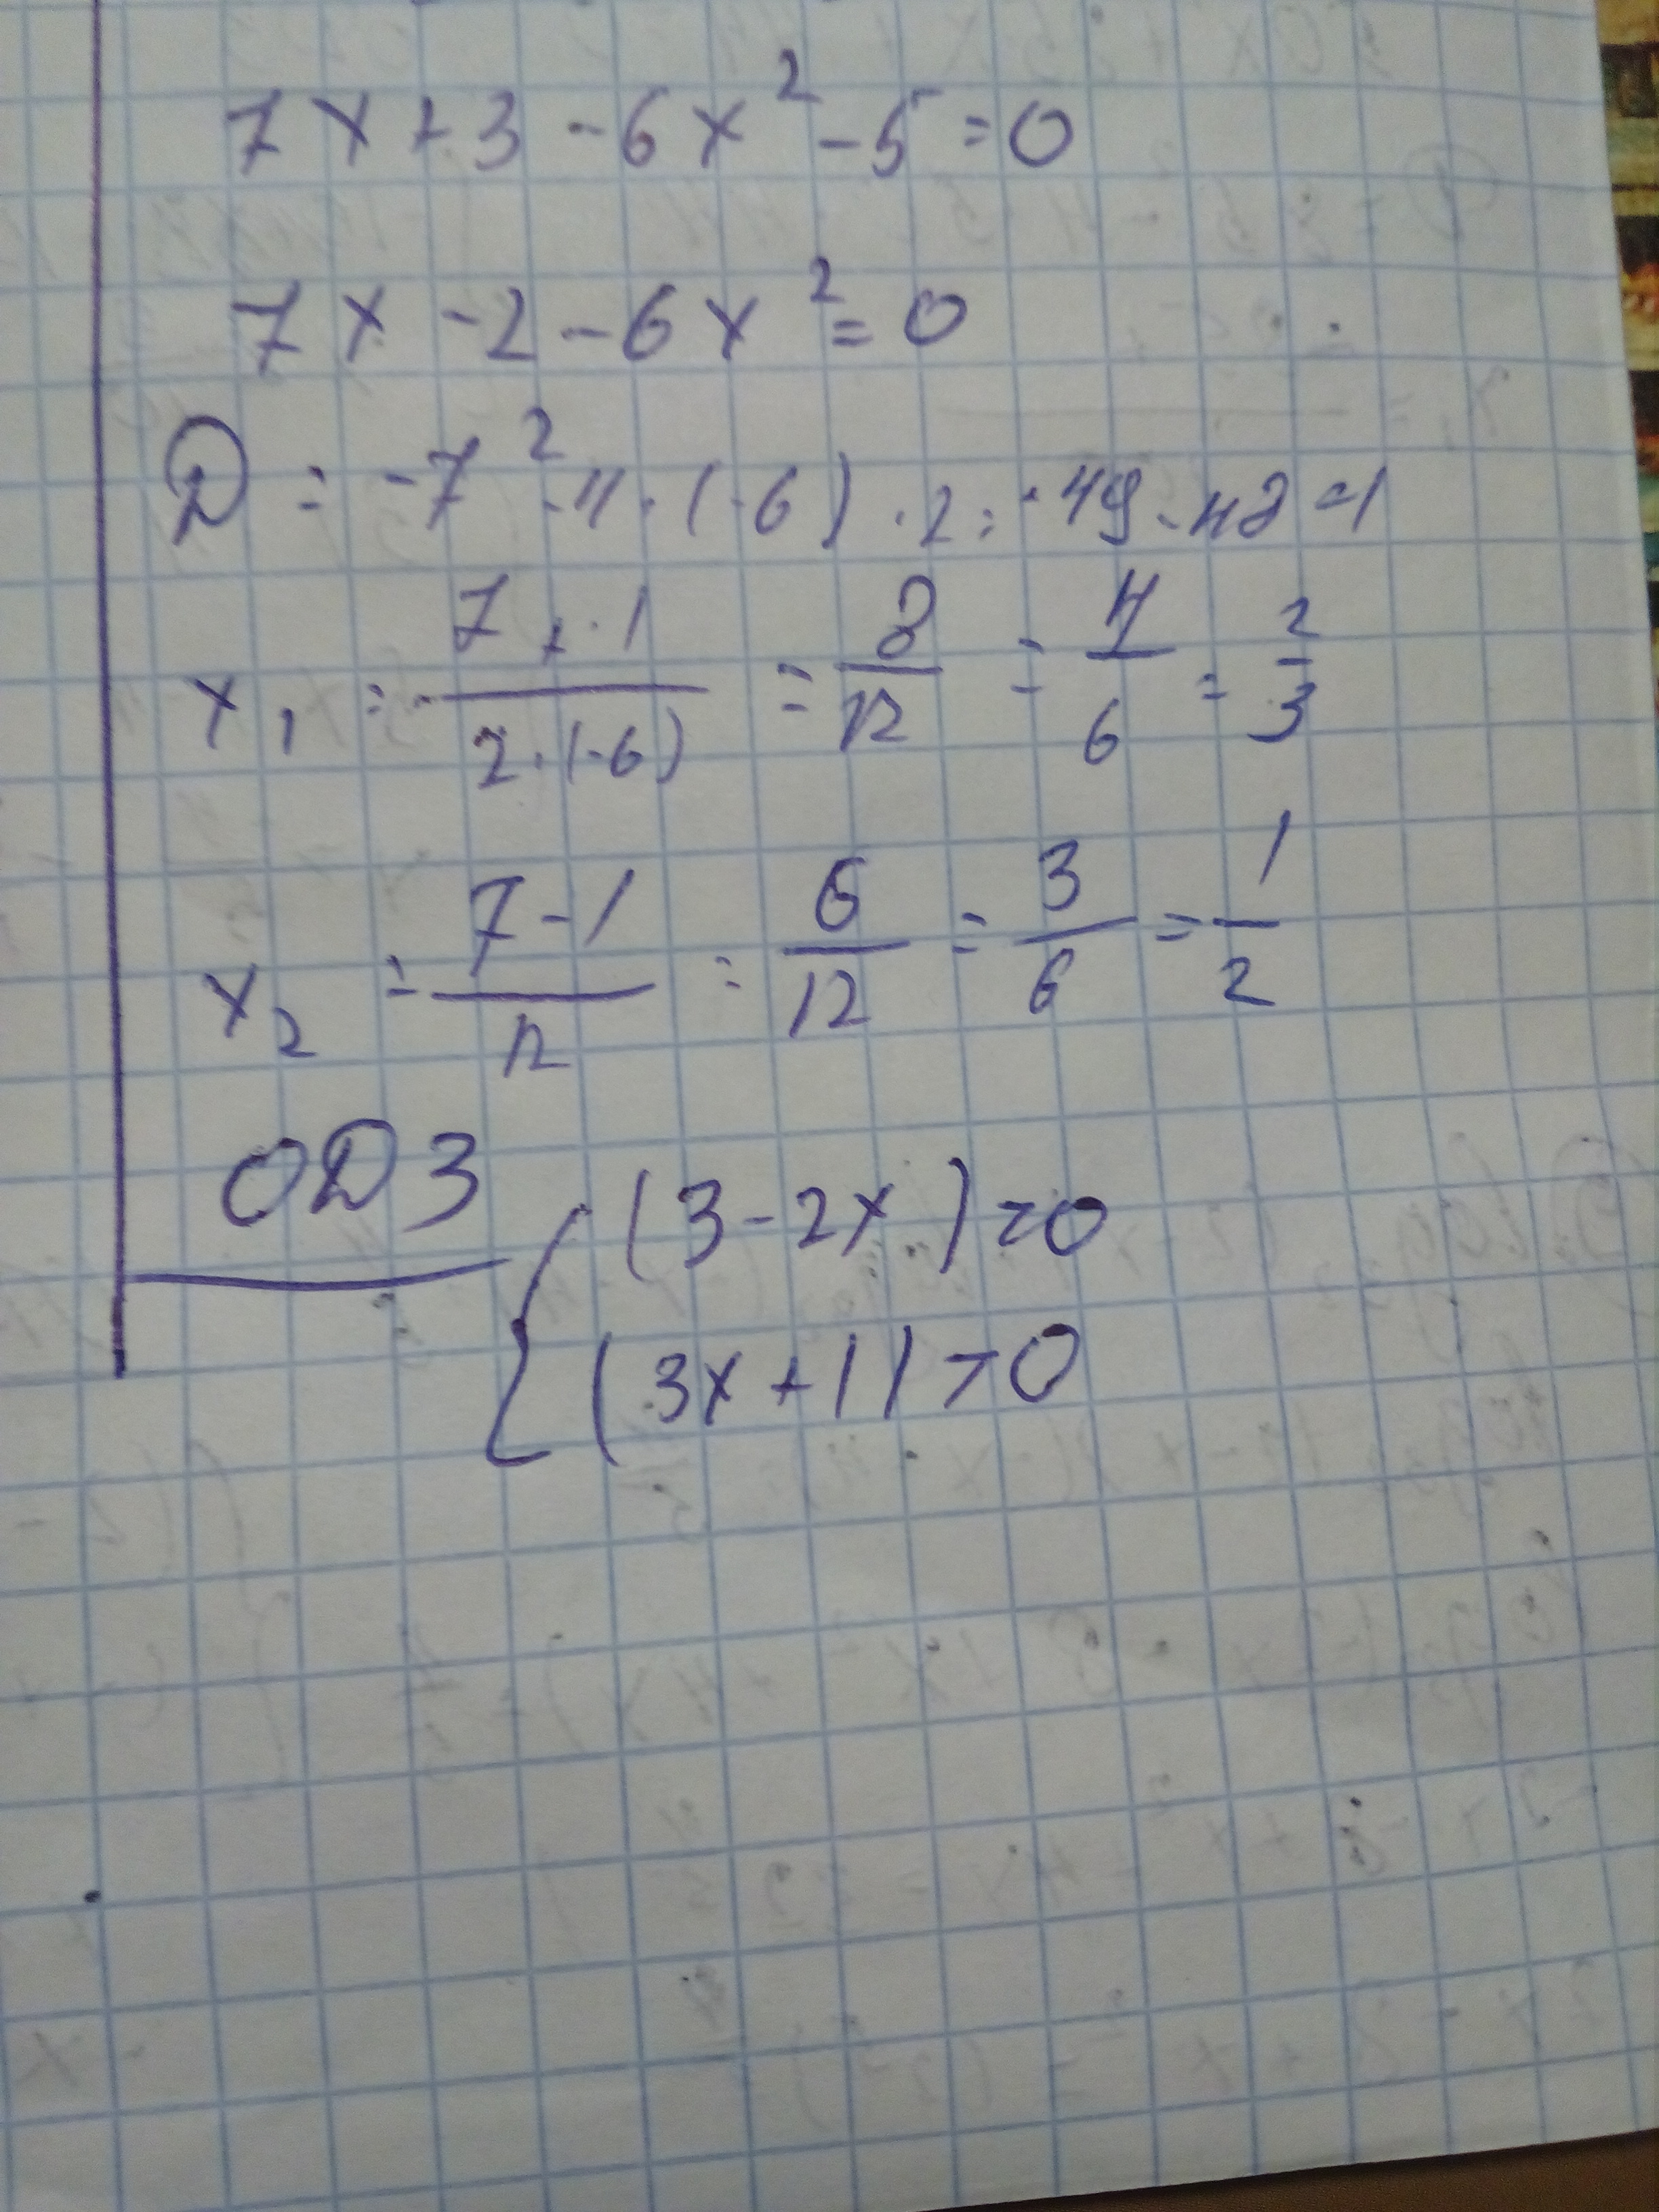 7x+3-6x²-5=0
7x-2-6x²=0
D=-7²-4·(-6)·2=-49-48=1
x₁=-\frac{7+1}{2·(-6)}=\frac{8}{12}=\frac{4}{6}=\frac{2}{3}
x₂=\frac{7-1}{12}=\frac{6}{12}=\frac{3}{6}=\frac{1}{2}
ОДЗ
{(3-2x)=0
(3x+1)>0